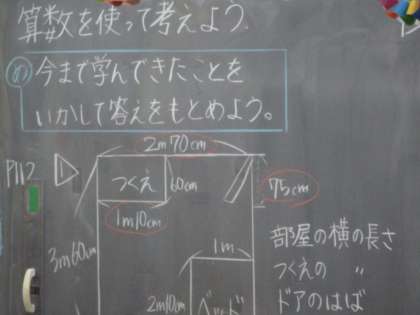 算数を使って考えよう.
め 今まで学んできたことを
いかして答えをもとめよう。
P112
1
2m70cm
つくえ
60cm
75cm
1m10cm
3m60cm
1m
2m10cm
ベッド
部屋の横の長さ
つくえの 〃
ドアのはば